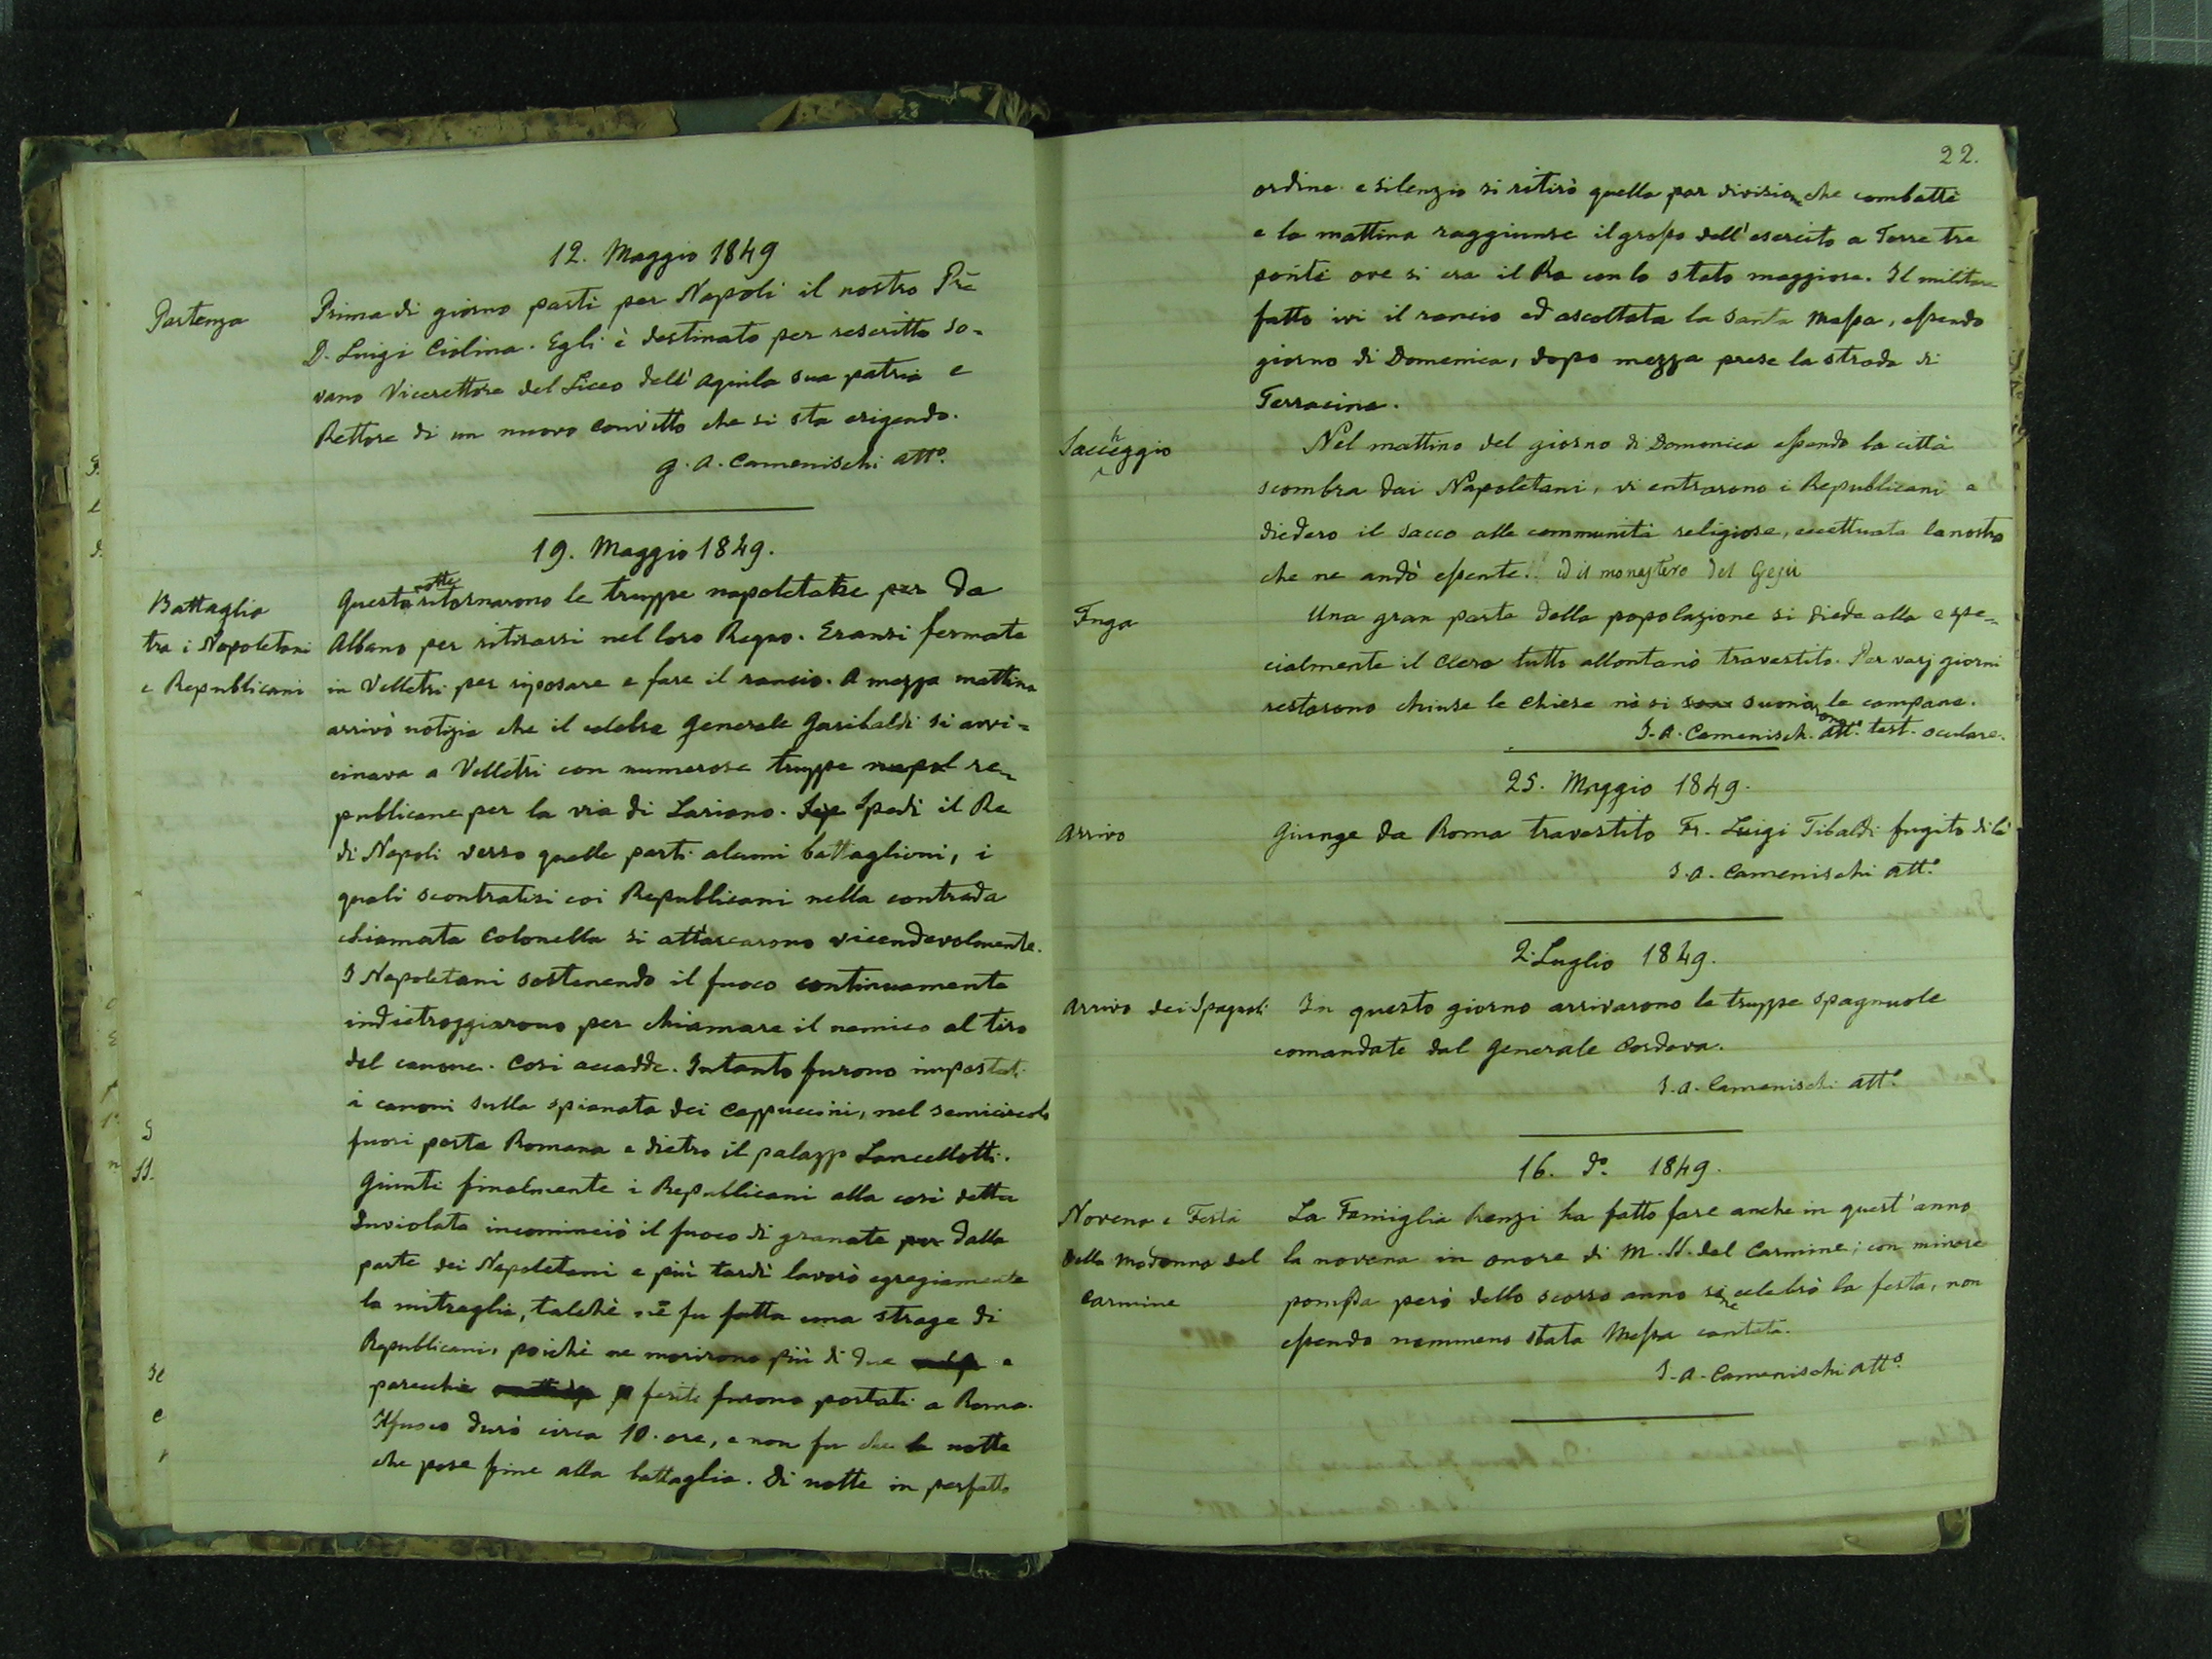 12. Maggio 1849
Partenza
Prima di giorno partì per Napoli il nostro Prē
D. Luigi Ciolina. Egli è destinato per rescritto so=
vano Vicerettore del Liceo dell'Aquila sua patria e
Rettore di un nuovo Convitto che si sta erigendo.
G. A. Camenischi Att.º
19. Maggio 1849.
Battaglia
tra i Napoletani
e Republicani
Questa notte ritornarono le truppe napoletane per da
Albano per ritirarsi nel loro Regno. Eransi fermate
in Velletri per riposare e fare il rancio. A mezza mattina
arrivò notizia che il celebre Generale Garibaldi si avvi=
cinava a Velletri con numerose truppe napol re=
publicane per la via di Lariano. Spedì il Re
di Napoli verso quelle parti alcuni battaglioni, i
quali scontratisi coi Republicani nella contrada
chiamata Colonella si attaccarono vicendevolmente.
I Napoletani sostenendo il fuoco continuamente
indietroggiarono per chiamare il nemico al tiro
del canone. Così accadde. Intanto furono impostati
i canoni sulla spianata dei Cappuccini, nel semicircolo
fuori porta Romana e dietro il palazzo Lancellotti.
Giunti finalmente i Republicani alla così detta
Inviolata incominciò il fuoco di granate per dalla
parte dei Napoletani e più tardi lavorò egregiamente
la mitraglia, talchè nē fu fatta una strage di
Republicani, poichè ne morirono più di due e
parecchi feriti furono portati a Roma.
Il fuoco durò circa 10. ore, e non fu che la notte
che pose fine alla battaglia. Di notte in perfetto
22.
ordine e silenzio si ritirò quella par divisione che combattè
e la mattina raggiunse il grosso dell'esercito a Torre tre
ponti ove si era il Re con lo stato maggiore. Il militare
fatto ivi il rancio ed ascoltata la santa Messa, essendo
giorno di Domenica, dopo mezza prese la strada di
Terracina.
Saccheggio
Nel mattino del giorno di Domenica essendo la città
scombra dai Napoletani, vi entrarono i Republicani e
diedero il sacco alle communità religiose, eccettuata la nostra
che ne andò esente. ed il monastero del Gesù
Fuga
Una gran parte della popolazione si diede alla e spe=
cialmente il Clero tutto allontanò travestito. Per varj giorni
restarono chiuse le Chiese nè si suonarono le campane.
J. A. Camenisch. Att.º test. oculare.
25. Maggio 1849.
Arrivo
Giunge da Roma travestito Fr. Luigi Tibaldi fugito di là
J. A. Camenischi Att.º
2. Luglio 1849.
Arrivo dei Spagnoli
In questo giorno arrivarono le truppe spagnuole
comandate dal Generale Cordova.
J. A. Camenischi Att.º
16. Dº. 1849.
Novena e Festa
della Madonna del
Carmine
La Famiglia Renzi ha fatto fare anche in quest'anno
la novena in onore di M. SS. del Carmine; con minore
pompa però dello scorso anno se ne celebrò la festa, non
essendo nemmeno stata Messa cantata.
J. A. Camenischi Att.º